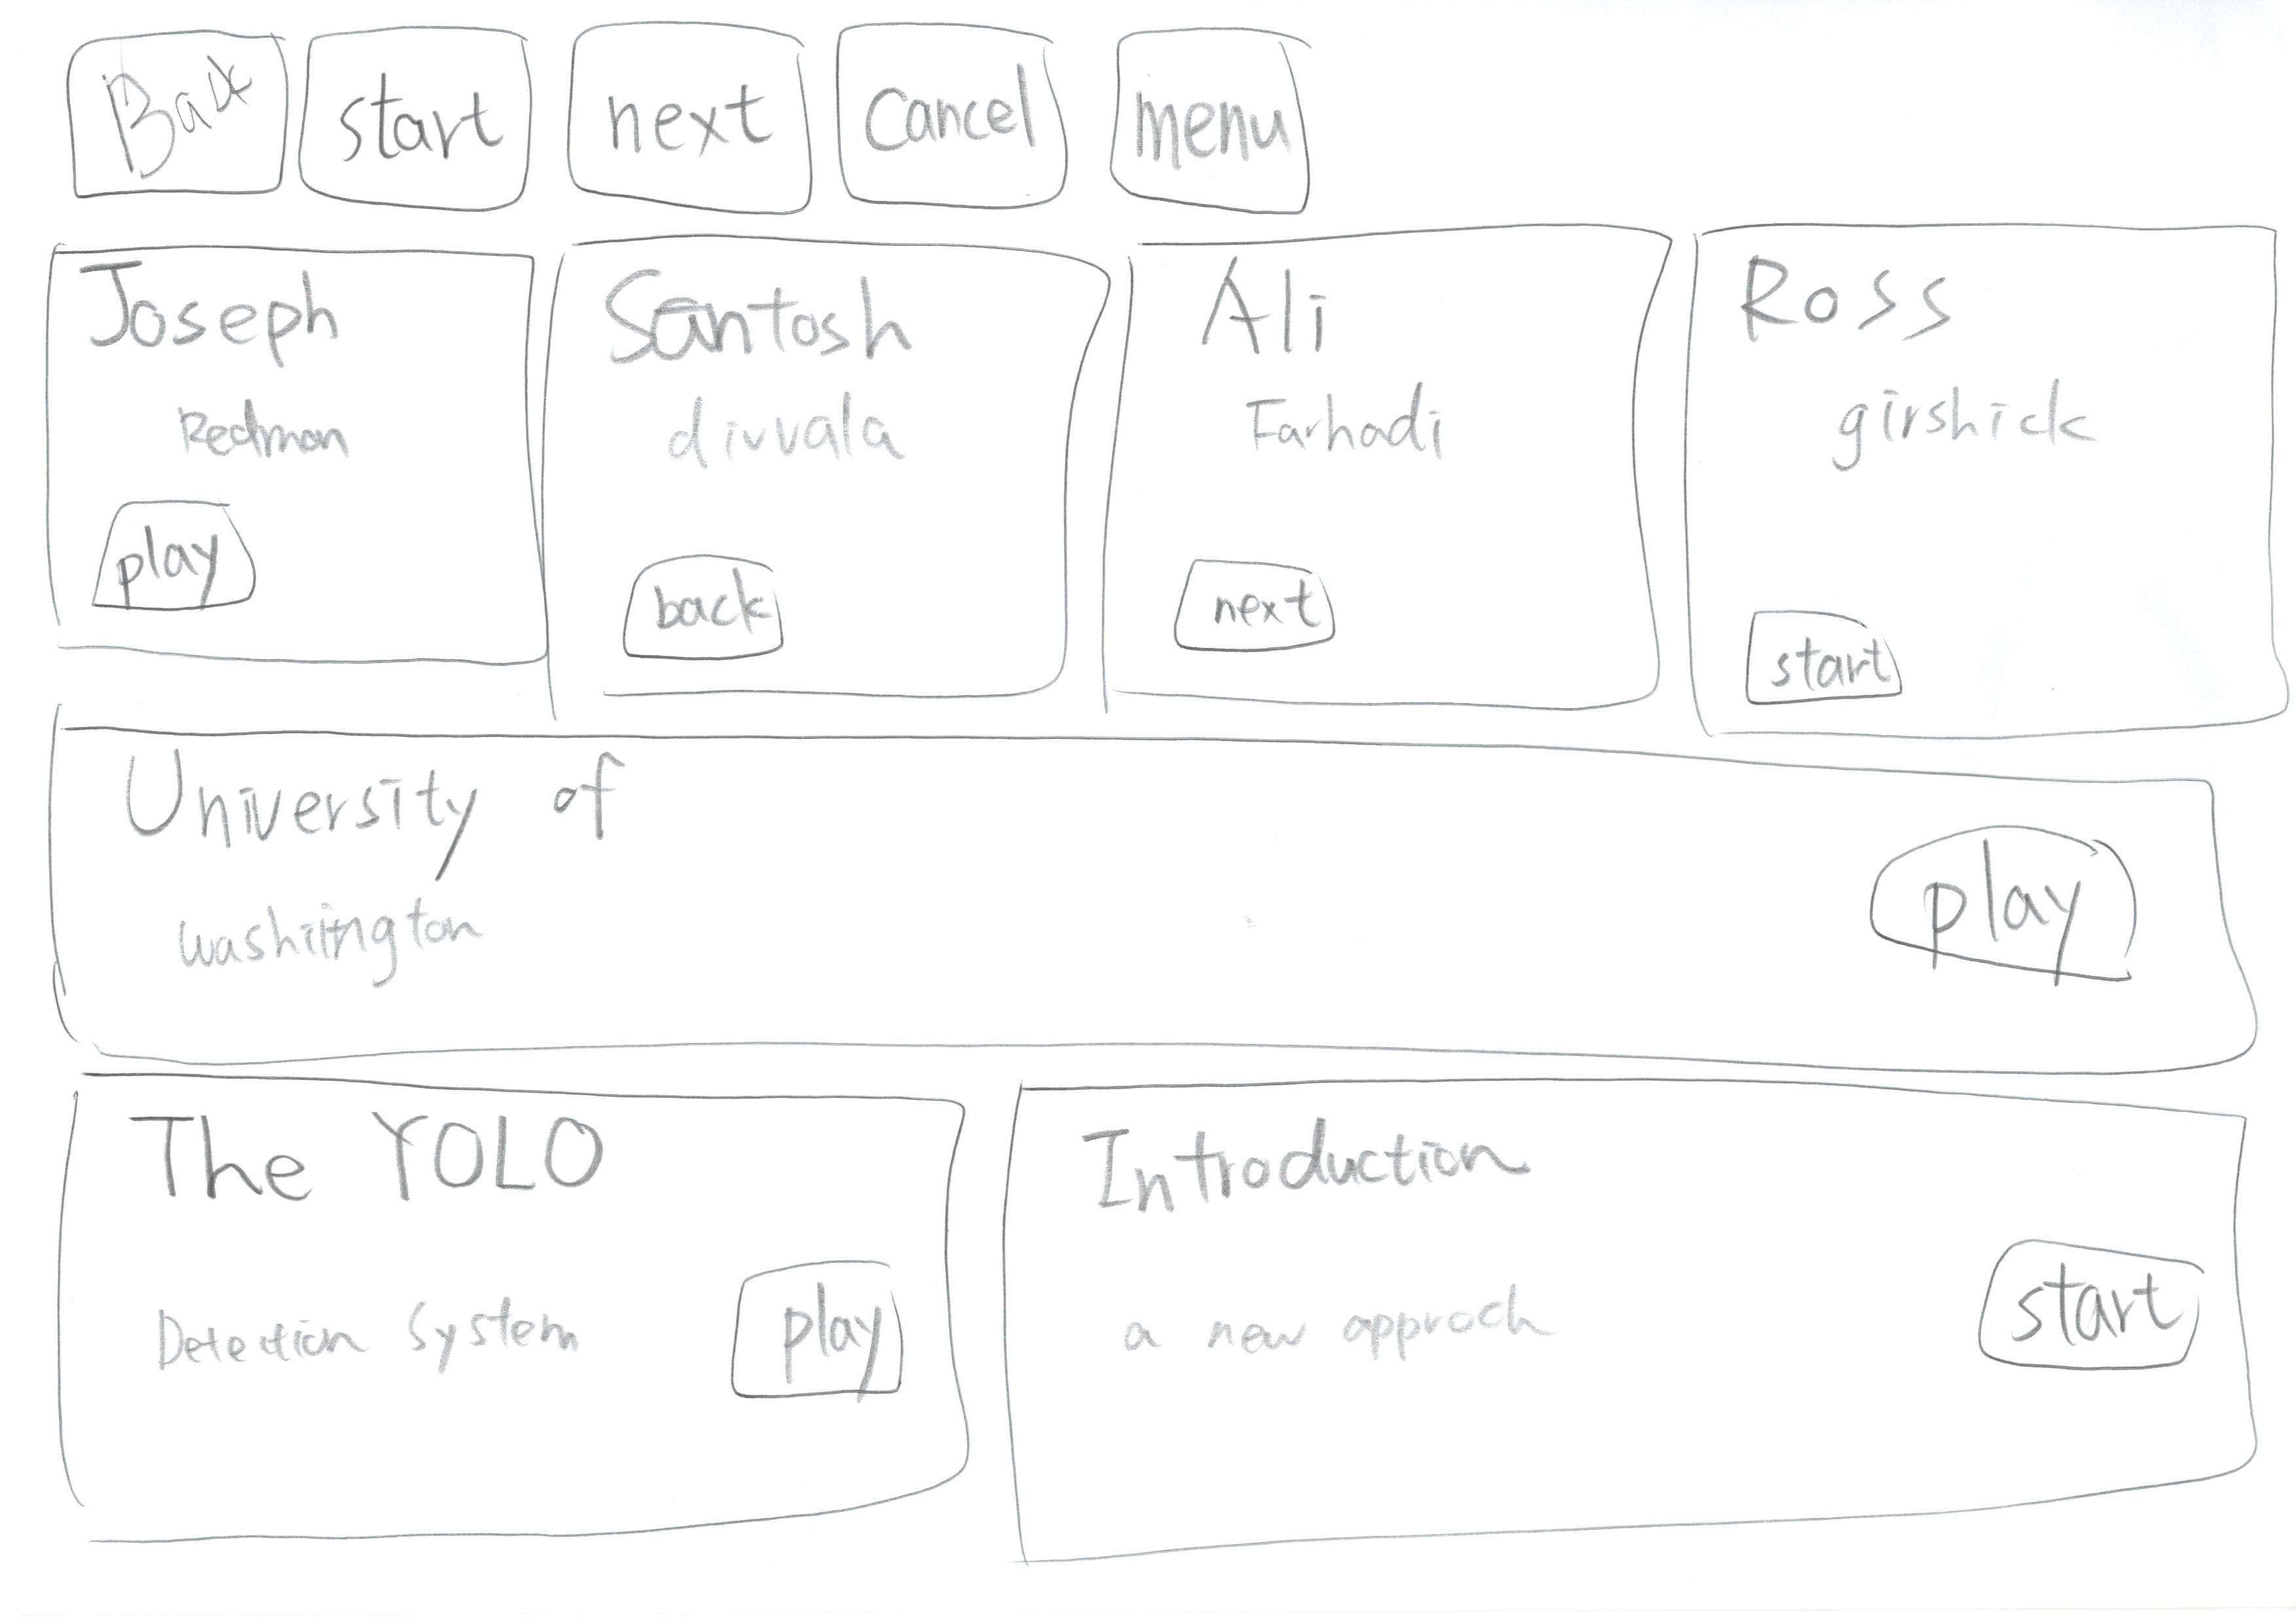 Back start next Cancel menu
Joseph
Redmon
play
Santosh
divvala
back
Ali
Farhadi
next
Ross
girshick
start
University of
washiington
play
The YOLO
Detection System
play
Introduction
a new approch
start